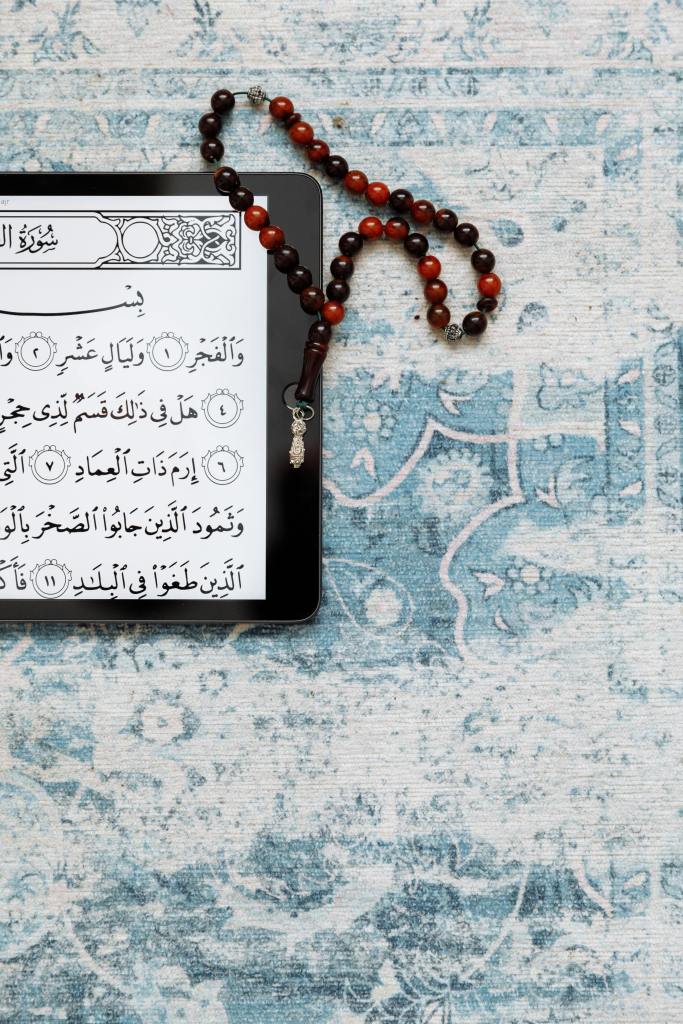 ajr
سُورَةُ ال
بِسْـ
وَالْفَجْرِ ١ وَلَيَالٍ عَشْرٍ ٢ وَا
٤ هَلْ فِى ذَٰلِكَ قَسَمٌ لِّذِى حِجْرٍ
٦ إِرَمَ ذَاتِ الْعِمَادِ ٧ الَّتِى
وَثَمُودَ الَّذِينَ جَابُوا الصَّخْرَ بِالْوَ
الَّذِينَ طَغَوْا فِى الْبِلَـٰدِ ١١ فَأَكْ